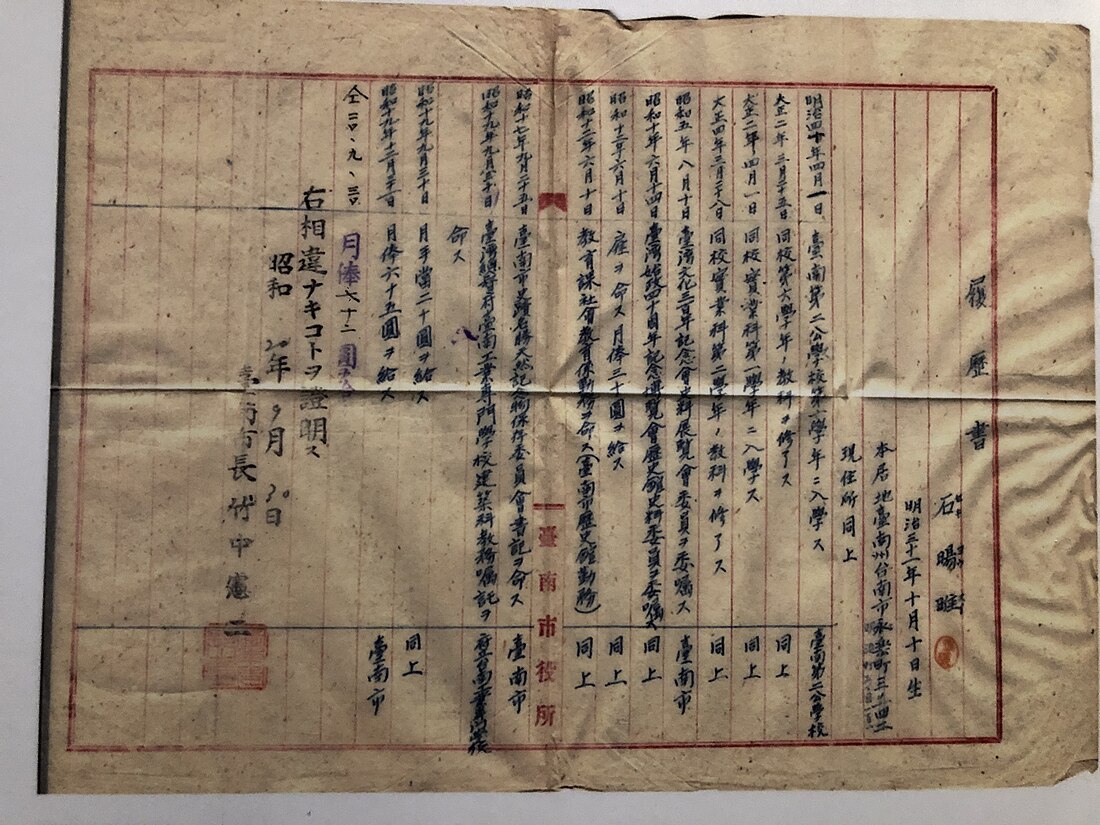 履歷書
石暘睢
明治三十一年十月十日生
本居地臺南州台南市永樂町三ノ四二
現住所同上
明治四十年四月一日 臺南第二公學校第一學年ニ入學ス 臺南第二公學校
大正二年三月二十五日 同校第六學年ノ教科ヲ修了ス 同上
大正二年四月一日 同校實業科第一學年ニ入學ス 同上
大正四年三月二十八日 同校實業科第二學年ノ教科ヲ修了ス 同上
昭和五年八月十日 臺灣文化三百年記念會史料展覽會委員ヲ委嘱ス 臺南市
昭和十年六月十四日 臺灣始政四十周年記念博覽會歷史館史料委員ヲ委嘱ス 同上
昭和十二年六月十日 雇ヲ命ス月俸三十圓ヲ給ス 同上
昭和十二年六月十日 教育課社會教育係勤務ヲ命ス(臺南市歷史館勤務) 同上
臺南市役所
昭和十七年九月二十五日 臺南市史蹟名勝天然記念物保存委員會書記ヲ命ス 臺南市
昭和十九年九月三十日 臺灣總督府臺南工業專門學校建築科教務嘱託ヲ
命ス
昭和十九年九月三十日 月手當二十圓ヲ給ス 同上
昭和十九年十二月三十一日 月俸六十五圓ヲ給ス 臺南市
仝二〇、九、三〇 月俸七十二圓
右相違ナキコトヲ證明ス
昭和20年9月30日
臺南市長竹中憲二